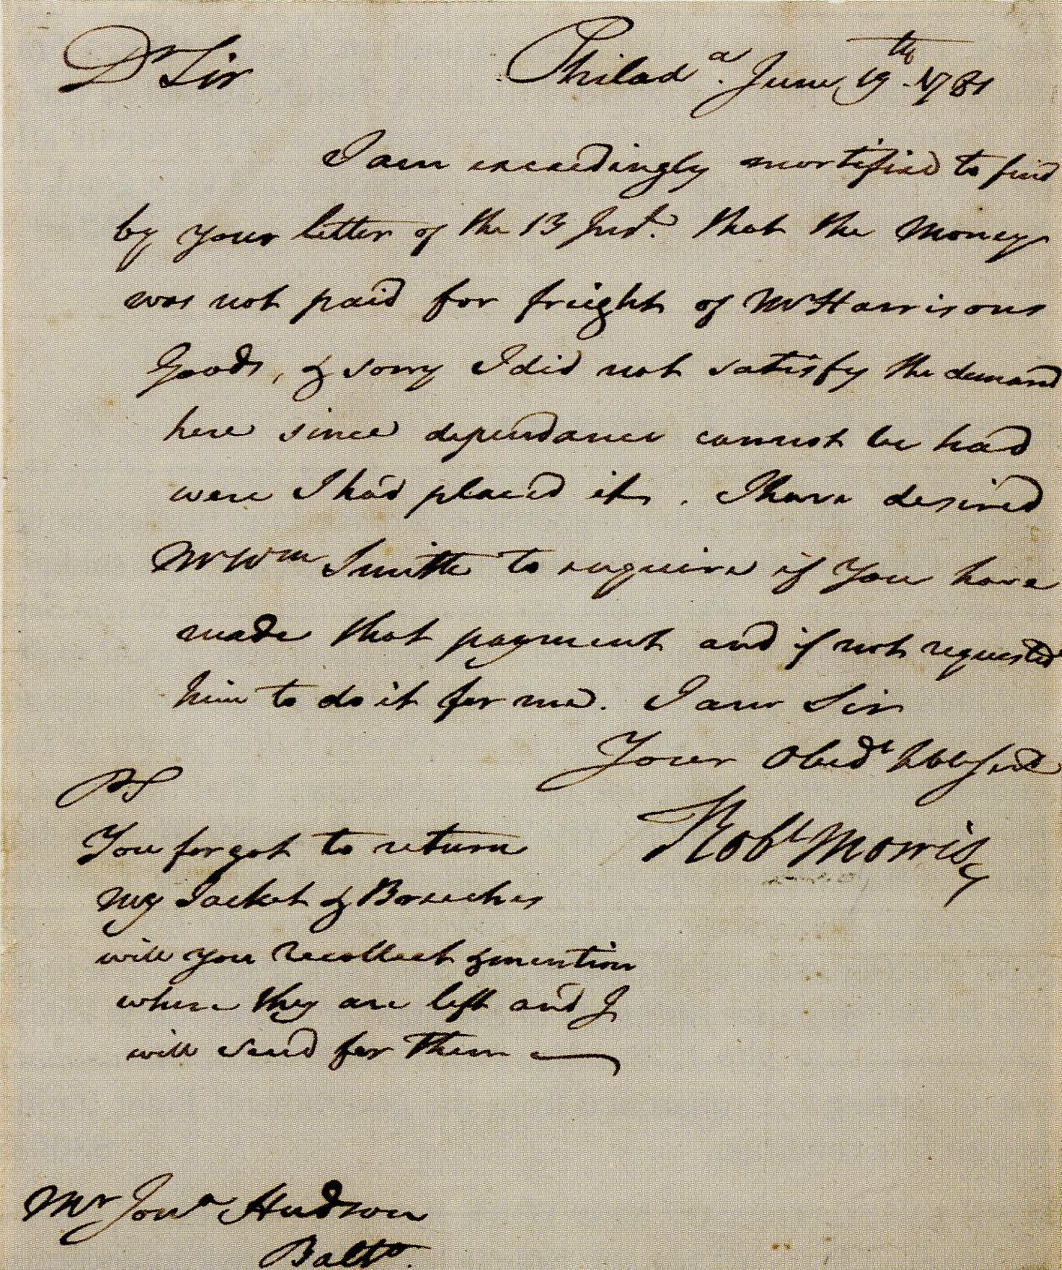 Dr Sir Philada. June 19th 1781
I am exceedingly mortified to find
by your letter of the 13 Inst. that the Money
was not paid for freight of Mr Harrisons
Goods, & sorry I did not satisfy the demand
here since dependance cannot be had
were I had placed it. I have desired
Mr Wm Smith to enquire if You have
made that payment and if not requested
him to do it for me. I am Sir
Your Obedt hble Servt
Robt Morris
PS
You forgot to return
my Jacket & Breeches
will you recollect & mention
where they are left and I
will send for them
Mr Jona Hudson
Balto.